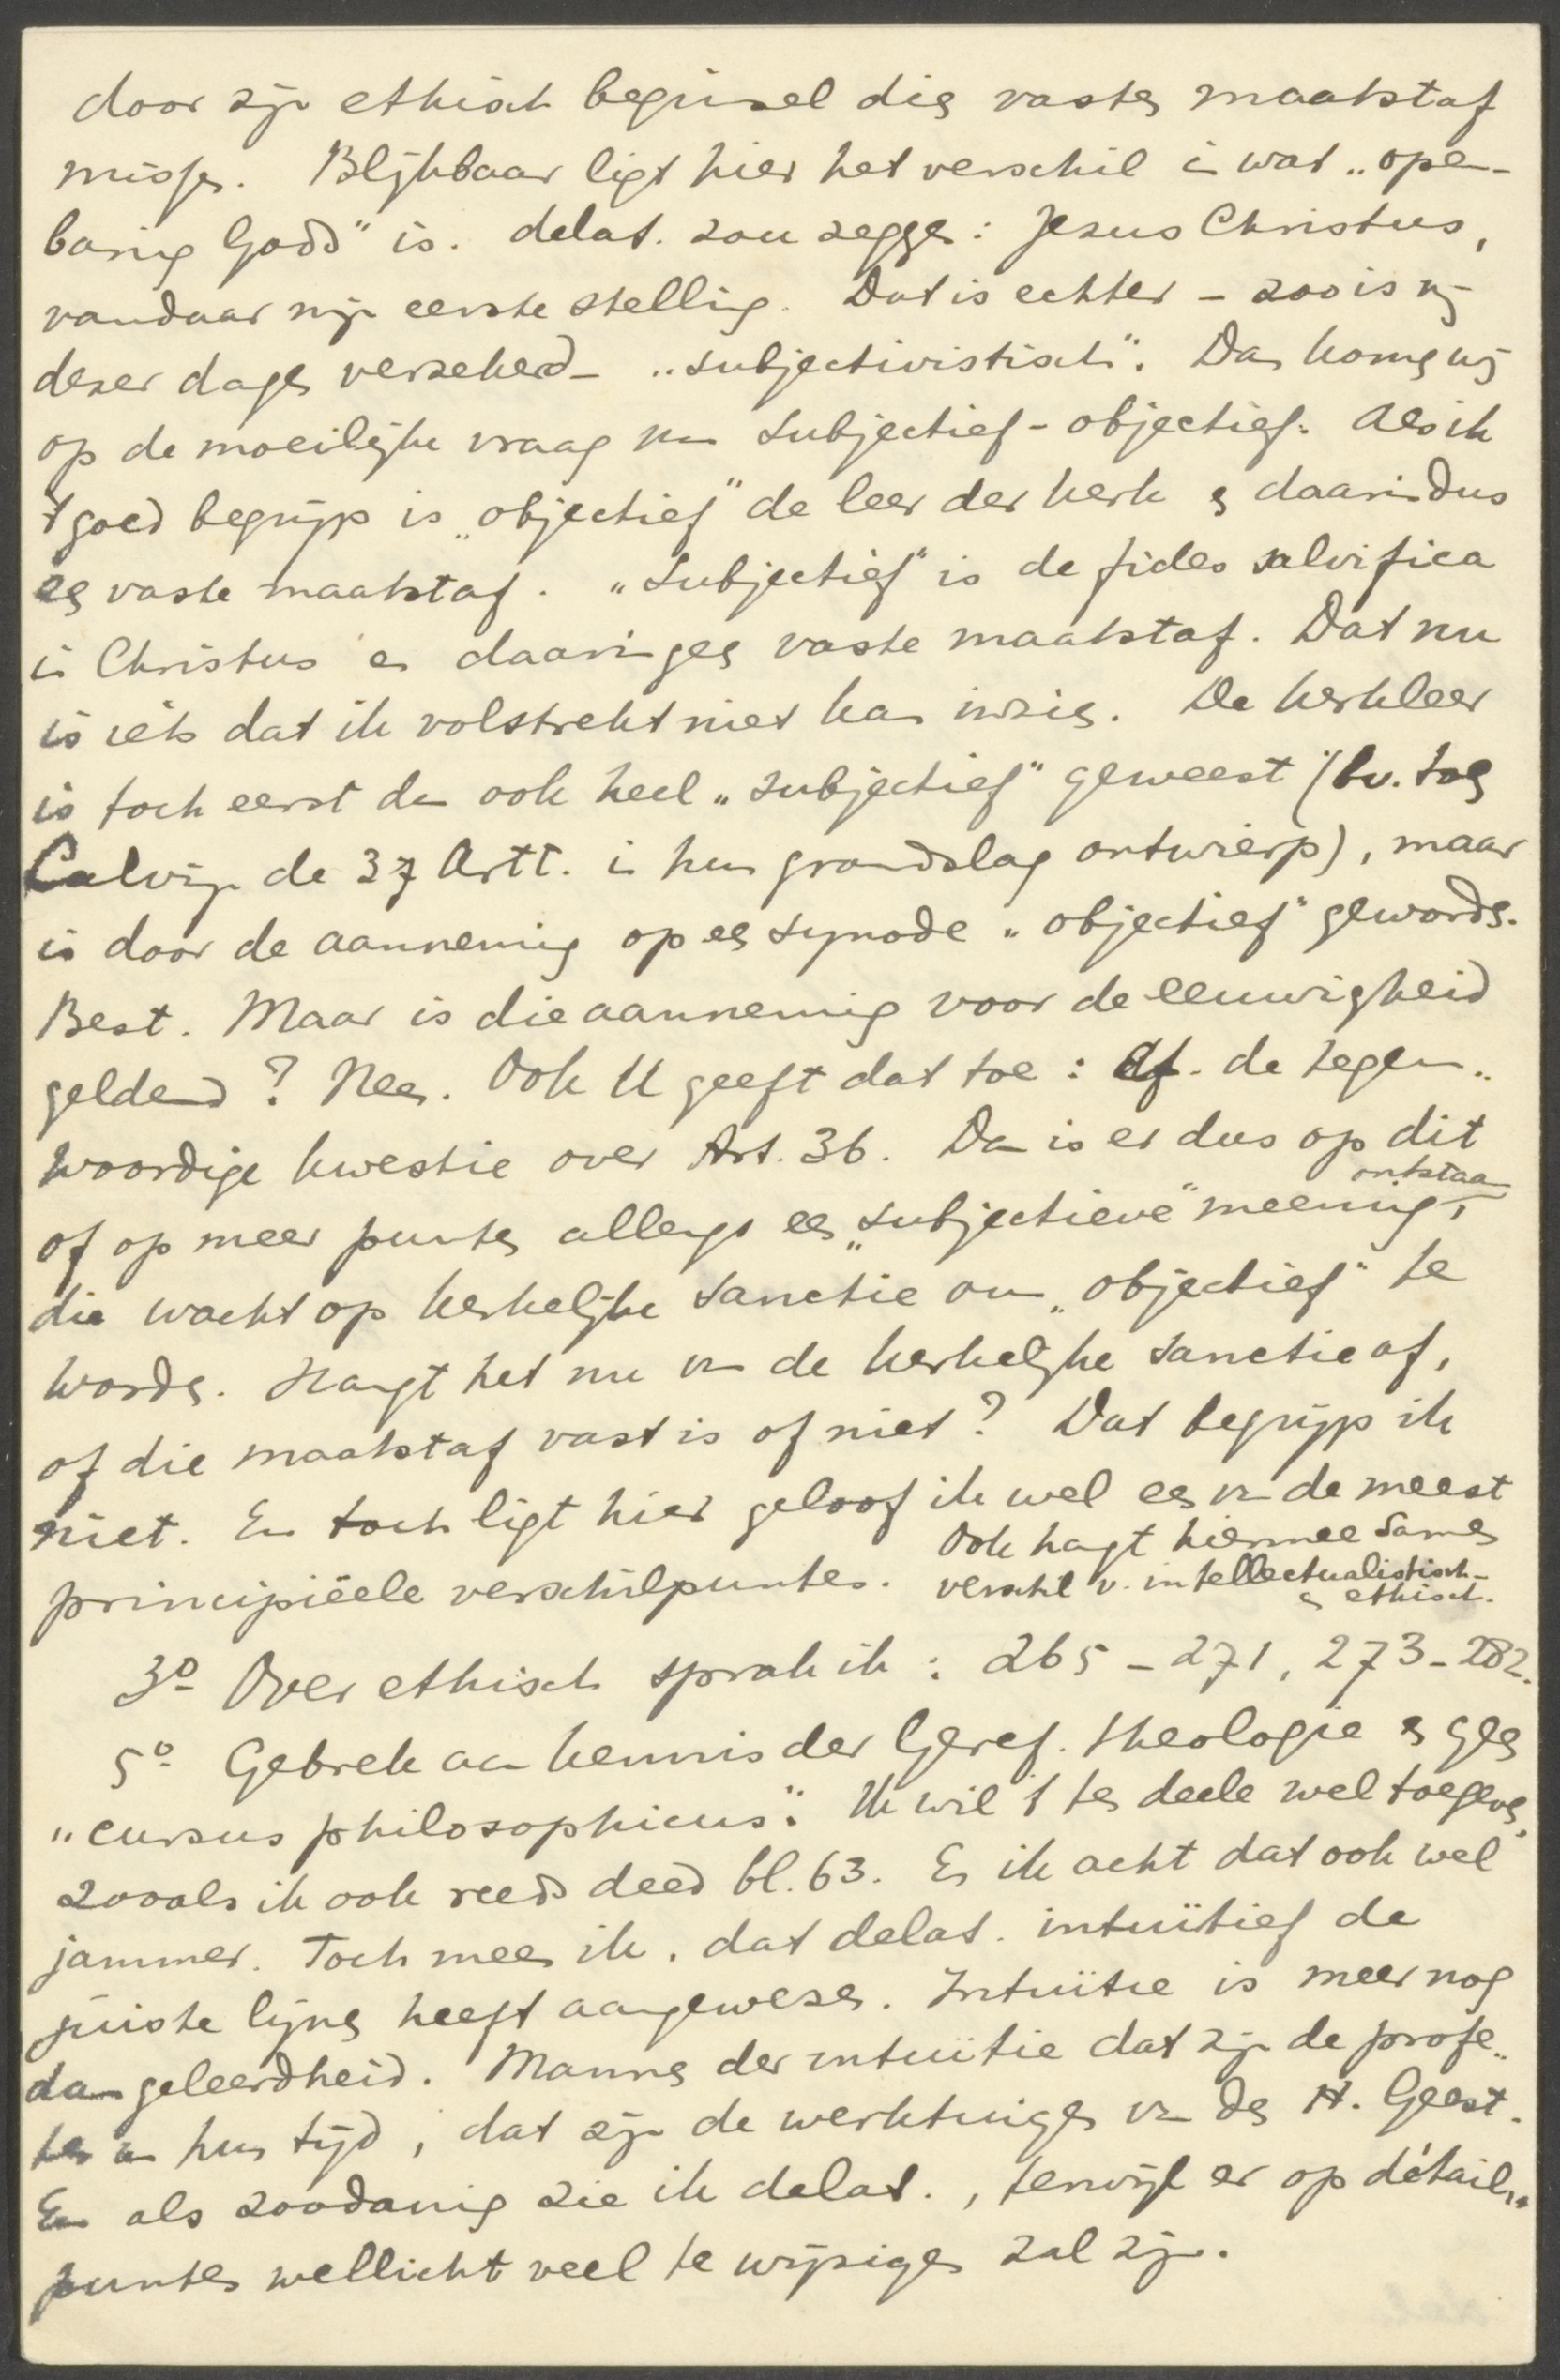 door zijn ethisch beginsel dien vasten maatstaf
missen. Blijkbaar ligt hier het verschil in wat „open-
baring Gods" is. delaS. zou zeggen: Jezus Christus,
vandaar mijn eerste stelling. Dat is echter - zoo is mij
dezer dagen verzekerd - „subjectivistisch". Dan komen wij
op de moeilijke vraag van subjectief - objectief. Als ik
't goed begrijp is „objectief" de leer der kerk en daarin dus
een vaste maatstaf. „Subjectief" is de fides salvifica
in Christus en daarin geen vaste maatstaf. Dat nu
is iets dat ik volstrekt niet kan inzien. De kerkleer
is toch eerst dan ook heel „subjectief" geweest (bv. toen
Calvijn de 37 Artt. in hun grondslag ontwierp), maar
is door de aanneming op een synode „objectief" geworden.
Best. Maar is die aanneming voor de eeuwigheid
geldend? Neen. Ook U geeft dat toe: cf. de tegen-
woordige kwestie over Art. 36. Dan is er dus op dit
of op meer punten allengs een „subjectieve" meening ontstaan,
die wacht op kerkelijke sanctie om „objectief" te
worden. Hangt het nu van de kerkelijke sanctie af,
of die maatstaf vast is of niet? Dat begrijp ik
niet. En toch ligt hier geloof ik wel een van de meest
principiëele verschilpunten. Ook hangt hiermee samen
verschil v. intellectualistisch-
en ethisch.
3º Over ethisch sprak ik: 265-271, 273-282.
5º Gebrek aan kennis der Geref. theologie en geen
„cursus philosophicus". Ik wil 't ten deele wel toegeven,
zooals ik ook reeds deed bl. 63. En ik acht dat ook wel
jammer. Toch meen ik, dat delaS. intuïtief de
juiste lijnen heeft aangewezen. Intuïtie is meer nog
dan geleerdheid. Mannen der intuïtie dat zijn de profe-
ten van hun tijd, dat zijn de werktuigen van den H. Geest.
En als zoodanig zie ik delaS., terwijl er op détail-
punten wellicht veel te wijzigen zal zijn.